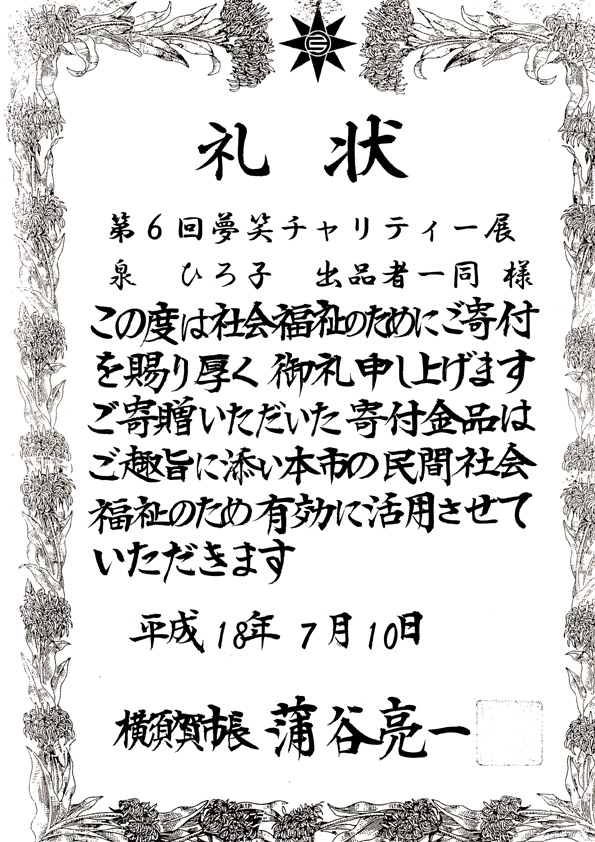 礼状
第6回夢笑チャリティー展
泉 ひろ子 出品者一同 様
この度は社会福祉のためにご寄付
を賜り厚く御礼申し上げます
ご寄贈いただいた寄付金品は
ご趣旨に添い本市の民間社会
福祉のため有効に活用させて
いただきます
平成18年7月10日
横須賀市長 蒲谷亮一